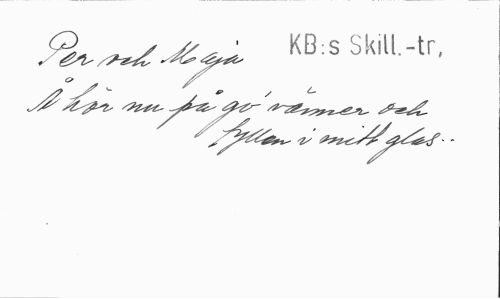 Per och Maja KB:s Skill.-tr,
Å hör nu på go' vänner och
fyllen i mitt glas..